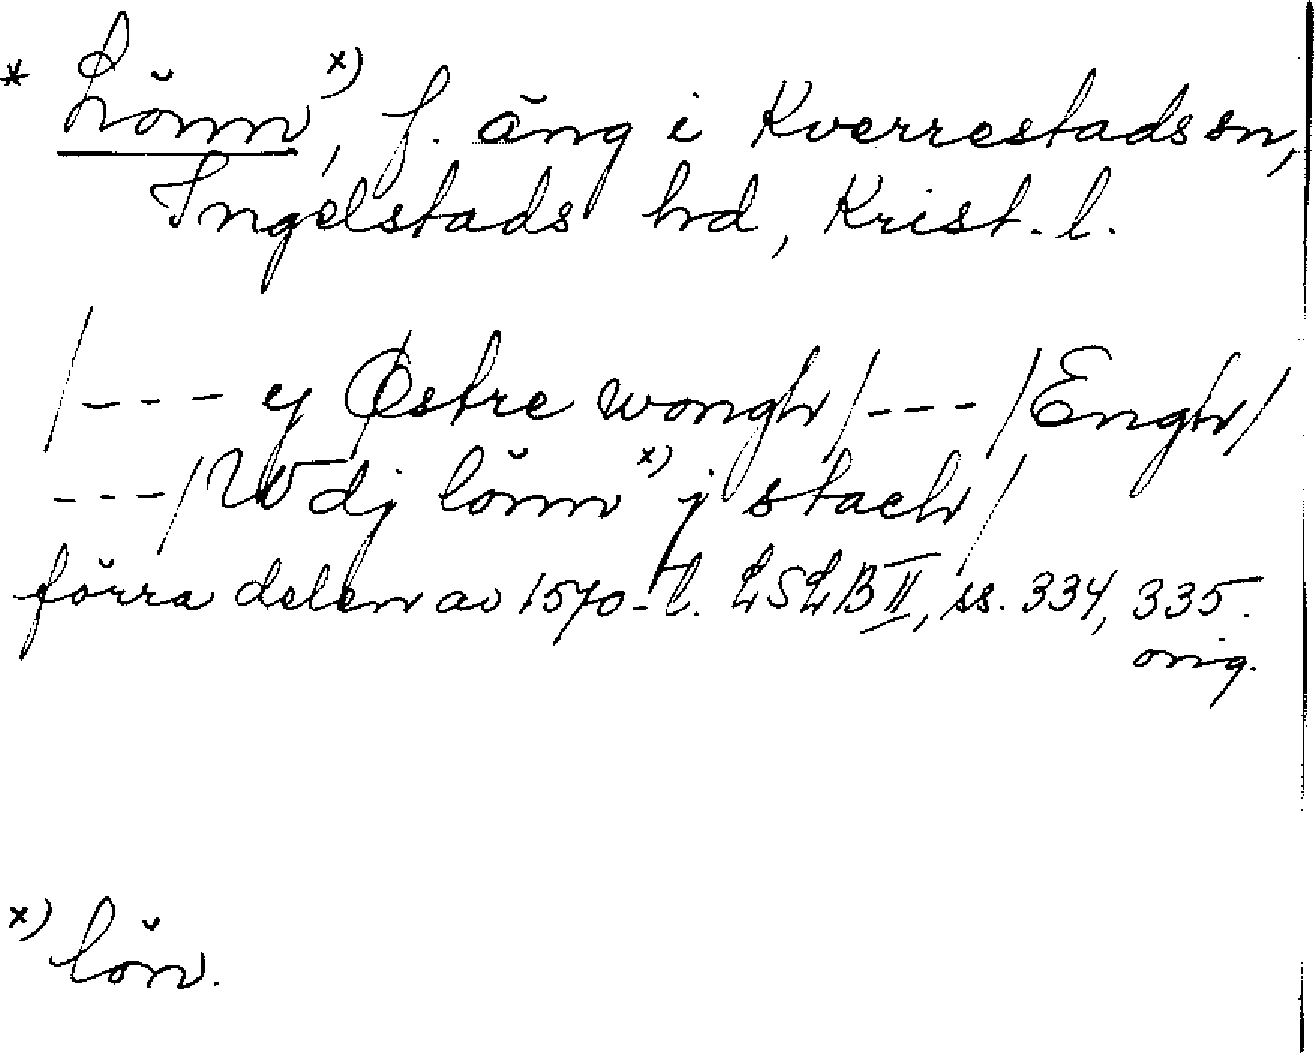 * Lönn x), f. äng i Kverrestads sn,
Ingelstads hd, Krist. l.
/--- ej Østre wongh/---/Engh/
---/Wdj lönn x) j stach/
förra delen av 1570-t. LSLB II, ss. 334, 335.
orig.
x) lön.